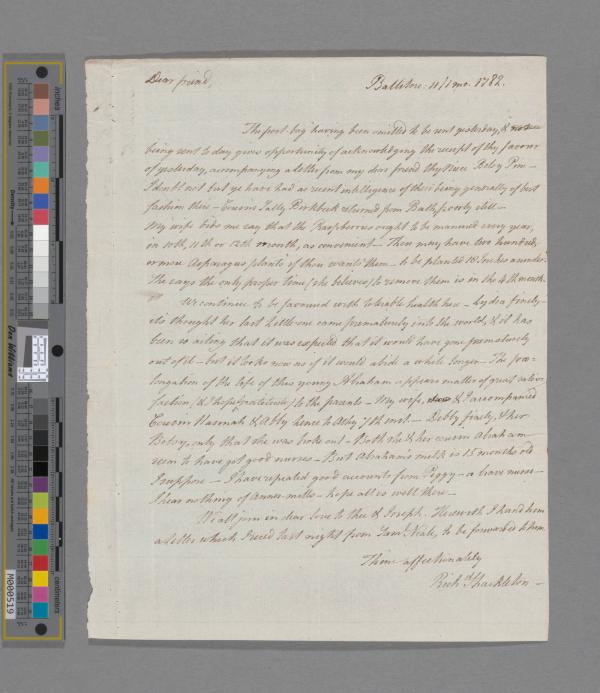 Dear friend,
Ballitore: 11/1mo. 1782.
The post-bag having been omitted to be sent yesterday, &
being sent to day gives opportunity of acknowledging the receipt of thy favour
of yesterday, accompanying a letter from my dear friend thy Niece Betsy Pim —
I doubt not but ye have had as recent intelligence of their being generally of best
fashion there — Cousin Sally Birkbeck returned from Bath, poorly still —
My wife bids me say that the Raspberries ought to be manured every year,
in 10th, 11th or 12th month, as convenient — Thou may have two hundred,
or more Asparagus plants if thou wants them — to be planted 18 Inches asunder.
She says the only proper time she believes to remove them is in the 4th month.
We continue to be favoured with tolerable health here — Lydia finely —
its thought her last little one came prematurely into the world, & it has
been so ailing that it was expected that it would have gone prematurely
out of it — but it looks now as if it would abide a while longer — The pro=
longation of the life of this young Abraham appears matter of great satis=
faction, (& I hope gratitude) to the parents — My wife, & I accompanied
Cousin Hannah & Abby hence to Athy 7th inst. — Debby finely, & her
Betsy, only that she was broke out — Both she & her cousin Abraham
seem to have got good nurses — But Abraham's milk is 15 months old
I suppose — I have repeated good accounts from Peggy — a brave nurse —
I hear nothing of Anner-mills — hope all is well there —
We all join in dear love to thee & Joseph. Herewith I hand him
a letter which I rec'd last night from Sam: Neale, to be forwarded to them.
Thine affectionately
Rich'd Shackleton —
inches
centimeters
Don Williams
M000519